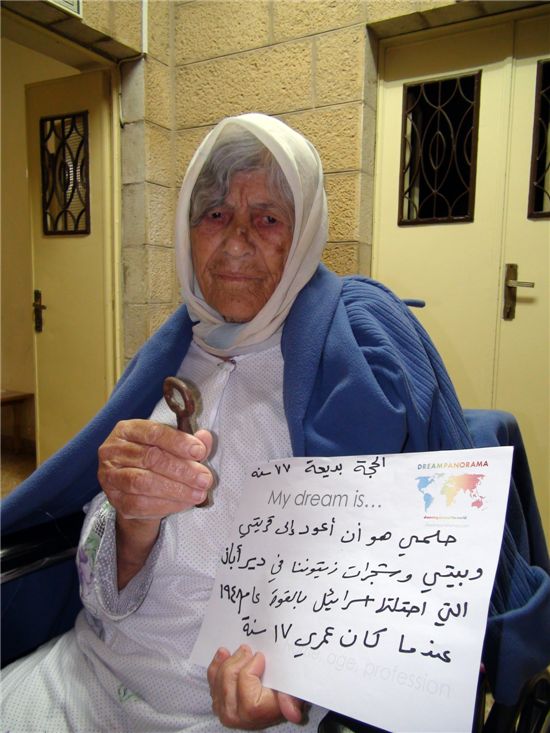 الحجة بديعة ٧٧ سنة
DREAMPANORAMA
My dream is...
حلمي هو أن أعود إلى قريتي
وبيتي وشجرات زيتوننا في ديرأبان
التي احتلتها اسرائيل بالقوة عام ١٩٤٨
عندما كان عمري ١٧ سنة
age, profession